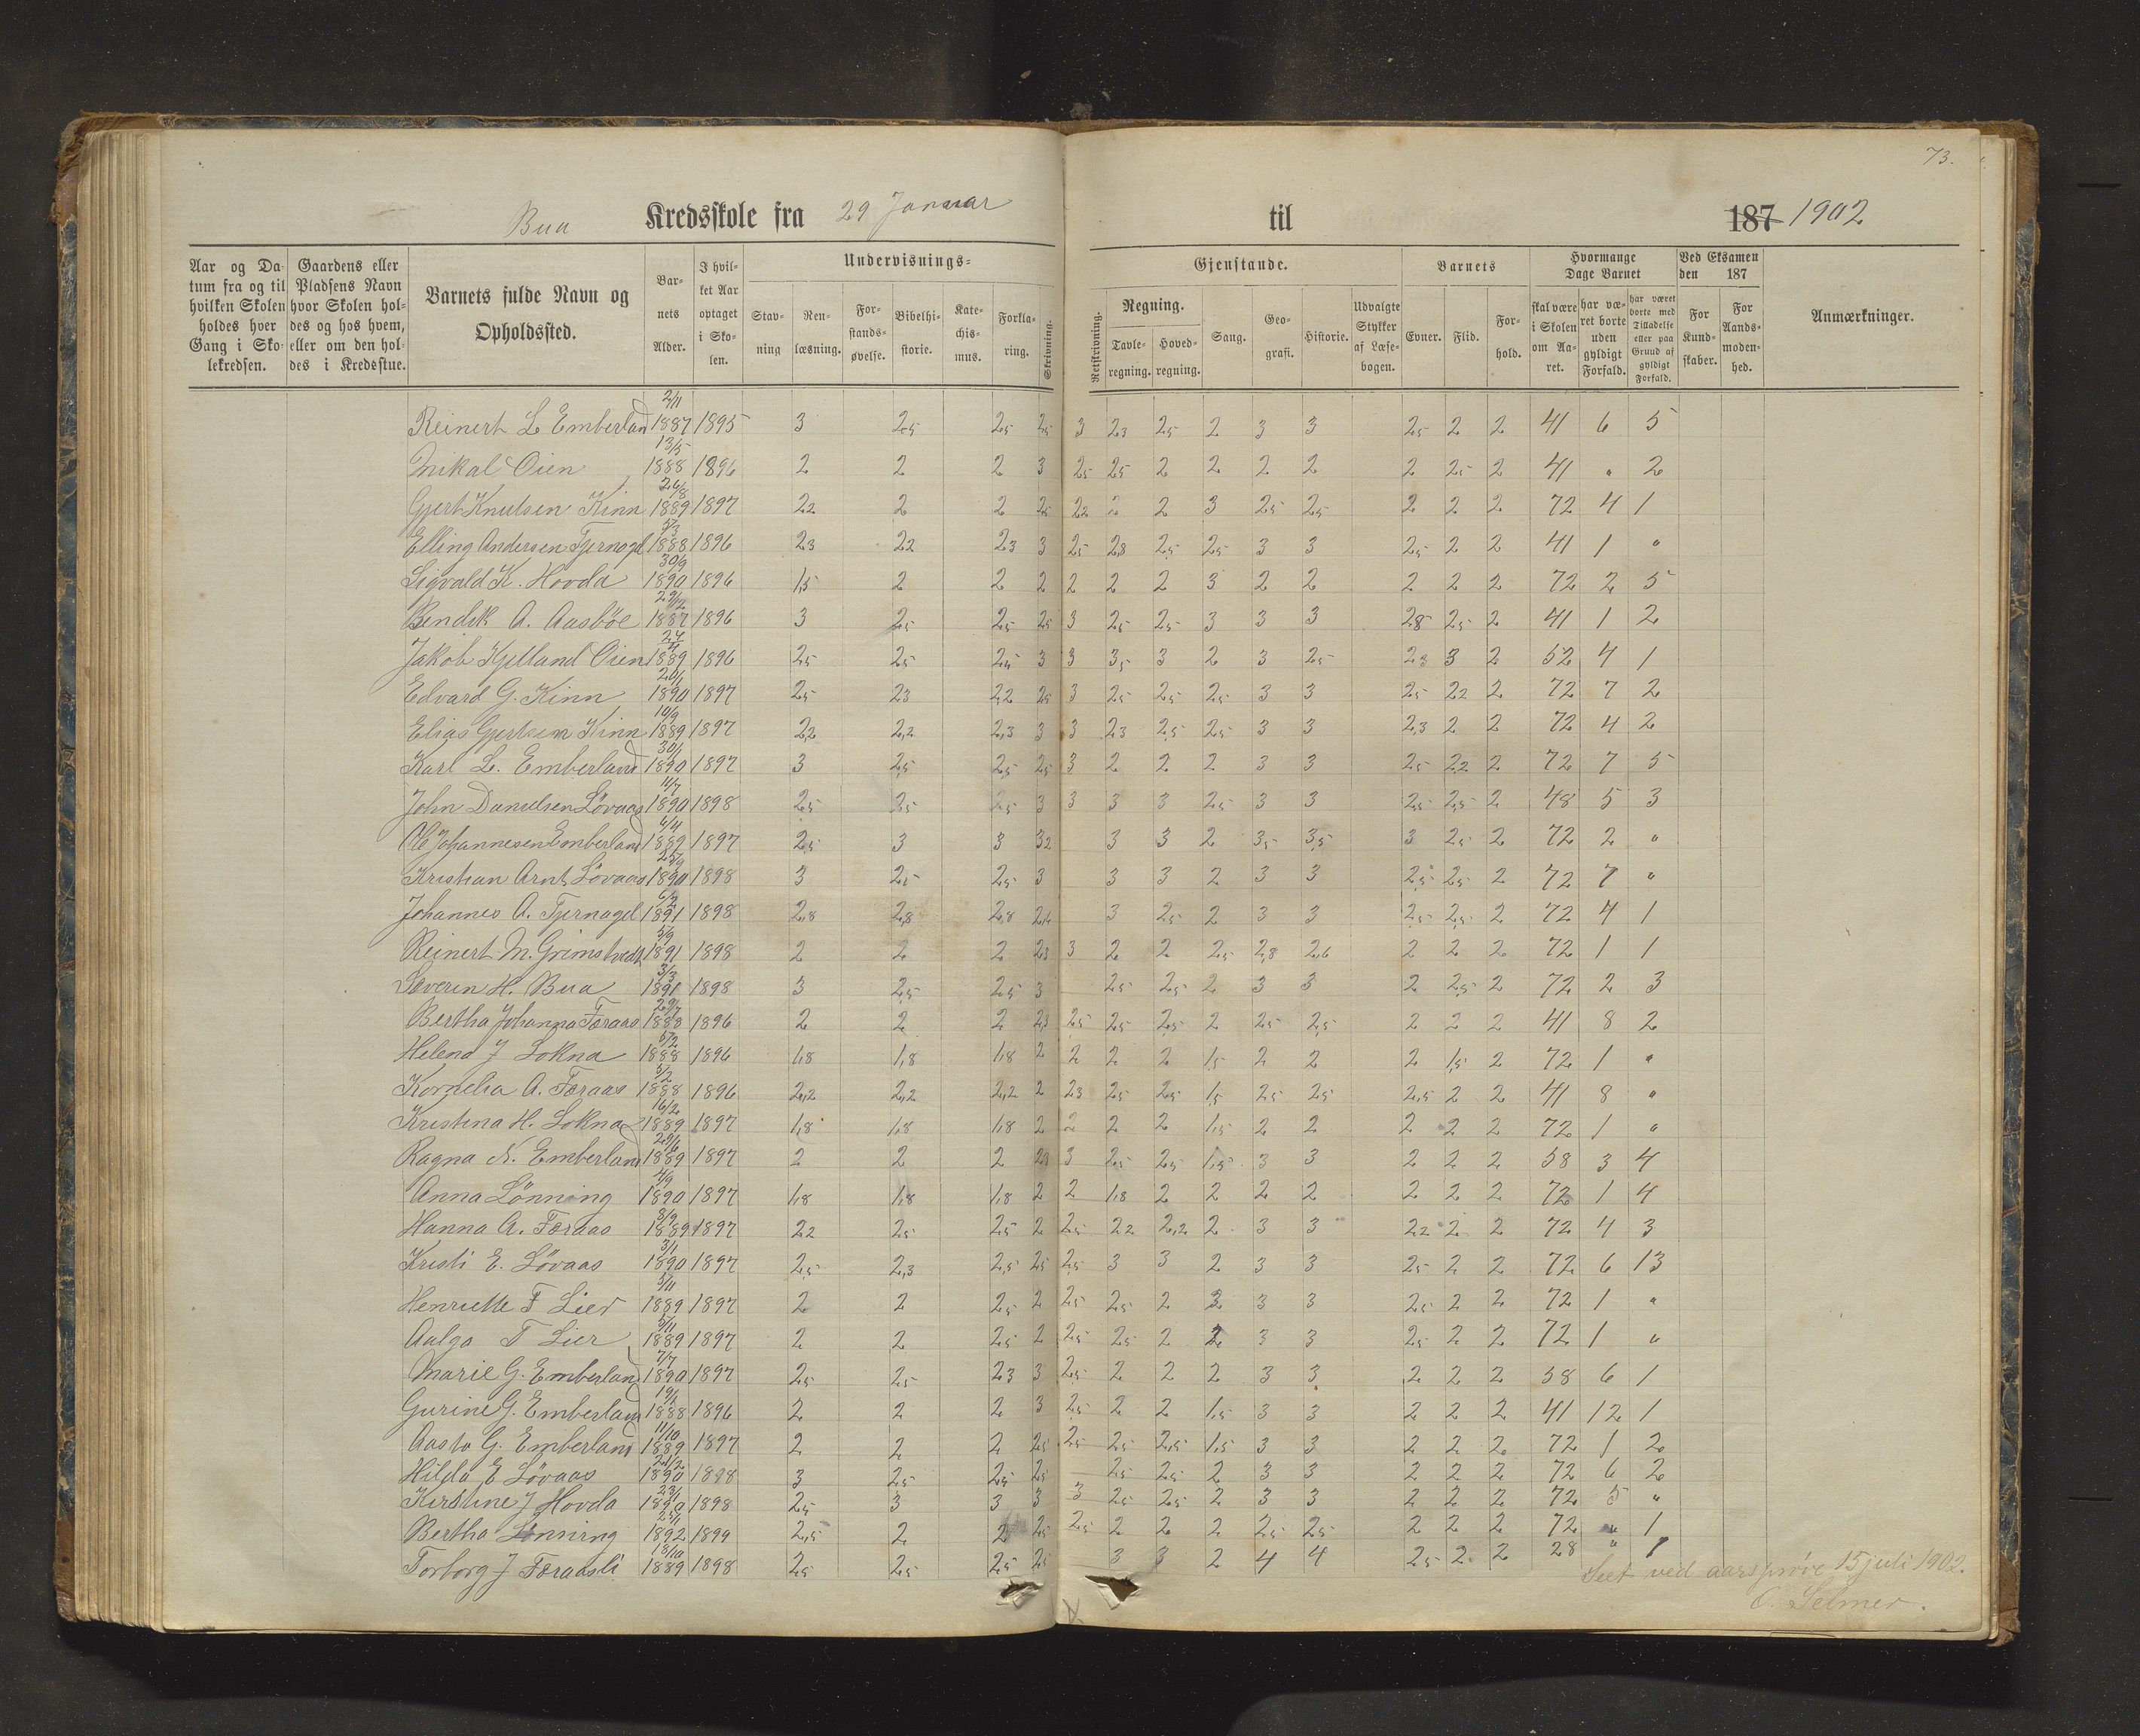 73.
Bua Kredsskole fra 29 Januar til 187 1902
Aar og Datum fra og til hvilken Skolen holdes hver Gang i Skolekredsen.
Gaardens eller Pladsens Navn hvor Skolen holdes og hos hvem, eller om den holdes i Kredsstue.
Barnets fulde Navn og Opholdssted.
Barnets Alder.
I hvilket Aar optaget i Skolen.
Undervisnings-Gjenstande.
Stavning
Renlæsning.
Forstandsøvelse.
Bibelhistorie.
Katechismus.
Forklaring.
Skrivning.
Retskrivning.
Regning.
Tavleregning.
Hovedregning.
Sang.
Geografi.
Historie.
Udvalgte Stykker af Læsebogen.
Barnets
Evner.
Flid.
Forhold.
Hvormange Dage Barnet
skal være i Skolen om Aaret.
har været borte uden gyldigt Forfald.
har været borte med Tilladelse eller paa Grund af gyldigt Forfald.
Ved Eksamen den 187
For Kundskaber.
For Aandsmodenhed.
Anmærkninger.
Reinert L Emberland 2/11 1887 1895 3 2,5 2,5 2,5 3 2,3 2,5 2 3 3 2,5 2 2 41 6 5
Mikal Oien 13/5 1888 1896 2 2 2 3 2,5 2,5 2 2 2 2 2 2,5 2 41 " 2
Gjert Knutsen Kinn 26/8 1889 1897 2,2 2 2 2,5 2,2 2 2 3 2,5 2,5 2 2 2 72 4 1
Elling Andersen Tjernagel 1888 1896 2,3 2,2 2,3 3 2,5 2,8 2,5 2,5 3 3 2,5 2 2 41 1 "
Sigvald K. Hovda 30/9 1890 1896 1,5 2 2 2 2 2 2 3 2 2 2 2 2 72 2 5
Bendik A. Aasböe 29/12 1887 1896 3 2,5 2,5 2,5 3 2,5 2,5 3 3 3 2,8 2,5 2 41 1 2
Jakob Kjelland Oien 1889 1896 2,5 2,5 2,5 3 3 3,5 3 2 3 2,5 2,3 3 2 52 4 1
Edvard G. Kinn 20/1 1890 1897 2,5 2,3 2,2 2,5 3 2,5 2,5 2,5 3 3 2,5 2,2 2 72 7 2
Elias Gjertsen Kinn 10/9 1889 1897 2,2 2,2 2,3 3 3 2,3 2,5 2,5 3 3 2,3 2 2 72 4 2
Karl L. Emberland 30/1 1890 1897 3 2,5 2,5 2,5 3 2 2 2 3 3 2,5 2,2 2 72 7 5
John Danielsen Lövaas 11/7 1890 1898 2,5 2,5 2,5 3 3 3 3 2,5 3 3 2,5 2,5 2 48 5 3
Ole Johannesen Emberland 6/4 1889 1897 2,5 3 3 3,2 3 3 2 3,5 3,5 3 2,5 2 72 2 "
Kristian Arnt Lövaas 25/9 1890 1898 3 2,5 2,5 3 3 3 2 3 3 2,5 2,5 2 72 7 "
Johannes A. Tjernagel 1891 1898 2,8 2,8 2,8 3 2,5 2 3 3 2,5 2,5 2 72 4 1
Reinert M. Grimstvedt 5/9 1891 1898 2 2 2 2,3 3 2 2 2,5 2,8 2,6 2 2 2 72 1 1
Severin H. Bua 3/3 1891 1898 3 2,5 2,5 3 2,5 2,5 2 3 3 2 2,5 2 72 2 3
Bertha Johanna Færaas 1888 1896 2 2 2 2,3 2,5 2,5 2,5 2 2,5 2,5 2 2 2 41 8 2
Helena J Lokna 5/2 1888 1896 1,8 1,8 1,8 2 2 2 2 1,5 2 2 2 1,5 2 72 1 "
Kornelia A. Færaas 5/2 1888 1896 2,2 2,2 2,2 2 2,3 2,5 2,5 1,5 2,5 2,5 2,5 2 2 41 8 "
Kristina H. Lokna 16/2 1889 1897 1,8 1,8 1,8 2 2 2 2 1,5 2 2 2 2 2 72 1 "
Ragna N. Emberland 29/6 1889 1897 2 2 2 3 2,5 2,5 1,5 3 3 2 2 2 58 3 4
Anna Lönning 4/9 1890 1897 1,8 1,8 1,8 2 2 1,8 2 2 2 2 2 2 2 72 1 4
Hanna A. Færaas 3/9 1889 1897 2,2 2,5 2,5 2 2,5 2,2 2,2 2 3 3 2,2 2 2 72 4 3
Kristi E. Lövaas 3/1 1890 1897 2,5 2,3 2,5 2,5 2,5 3 3 2 3 3 2,5 2 2 72 6 13
Henriette F Lier 5/11 1889 1897 2 2 2,5 2 2,5 2,5 2 2 3 3 2,5 2 2 72 1 "
Aalga F Lier 5/11 1889 1897 2 2 2,5 2 2,5 2,5 2 2 3 3 2,5 2 2 72 1 "
Marie G. Emberland 7/7 1890 1897 2,5 2,5 2,3 3 2,5 2 2 2 3 3 2 2 2 58 6 1
Gurine G. Emberland 1888 1896 2 2 2 3 2,5 2 2 1,5 3 3 2 2 2 41 12 1
Aasta G. Emberland 11/10 1889 1897 2 2 2 2,5 2,5 2,5 2,5 1,5 3 3 2 2 2 72 1 2
Hilda E Lövaas 1890 1898 3 2,5 2,5 2,5 2,5 2,5 2 3 3 2 2 2 72 6 2
Kirstine J Hovda 1890 1898 2,5 3 3 3 3 2,5 2,5 2 3 3 2 2 2 72 5 "
Bertha Lönning 1892 1899 2,5 2 2 2,5 2,5 2 2 2 2,5 2,5 2 2 2 72 " 1
Torborg J Færaasli 18/10 1889 1898 2,5 2,5 2,5 2,5 3 3 2 4 4 2,5 2 2 28 " 1
Seet ved aarsprøve 15 juli 1902.
O. Selmer.